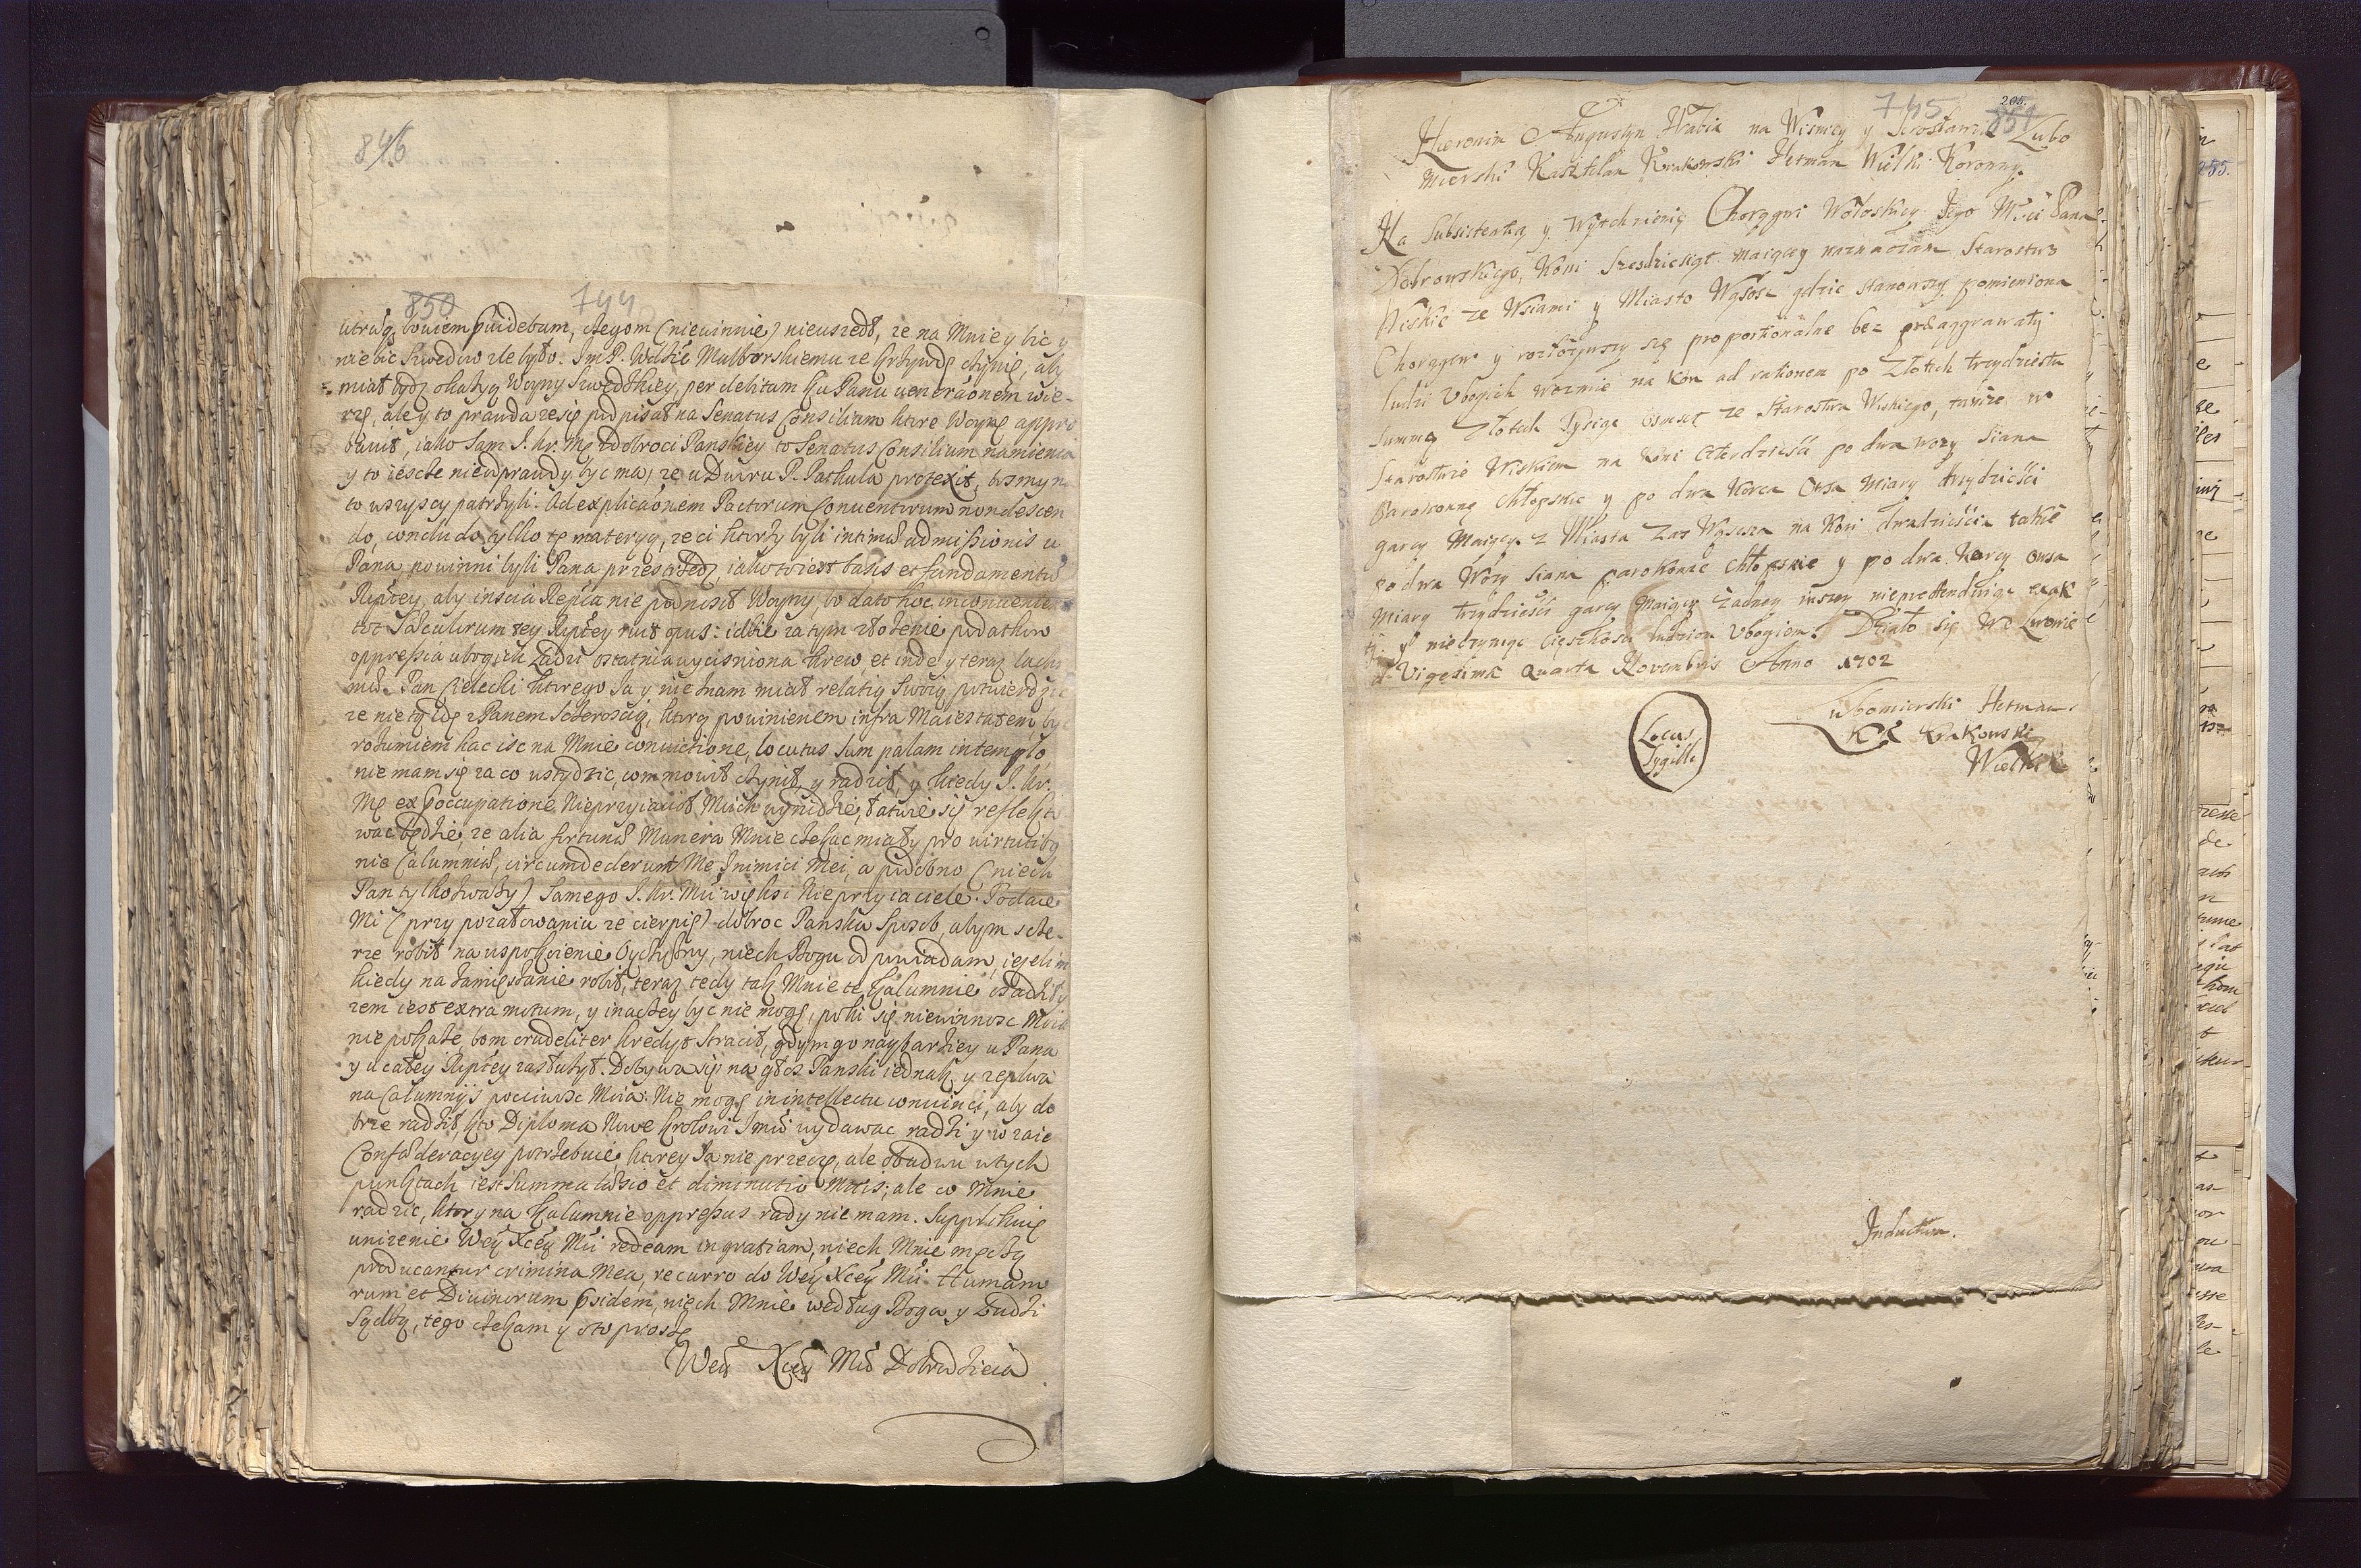 846
850 744
utrăq bowiem pvidebam, czegom (niewinnie) nieuszedł, ze na Mnie y bic y
nie bic Szwedow zle było. Jm P. Wdzie Malborskiemu ze krzywdę czynię, aby
miał bydz okazyą Woyny Szwedzkiey, per debitam ku Panu veneraonem wie-
rzę, ale y to prawda ze się podpisał na Senatus Consilium ktore Woynę appro
bawił, iako Sam J. Kr. Mę z dobroci Panskiey to Senatus Consilium namienia
y to iescze nieprawdy byc ma, ze u Dworu P. Patkula protexit, bosmy na
to wszyscy patrzyli. Ad explicaonem Pactorum Conventorum non descen
do, concludo tylko tę materyą, ze ci ktorzy byli intimæ admissionis u
Pana powinni byli Pana przestrzedz, iako to iest basis et fundamentū
Rzptey, aby inscia Repca nie podnosił Woyny, bo dato hoc inconvenienti
tot Sæculorum tey Rzptey ruit opus: idzie za tym złozenie podatkow
oppressia ubogich Ludzi ostatnia wycisniona krew, et inde y teraz lachri
mæ. Pan Cielecki ktorego Ja y nie znam miał relatią Swoią potwierdzic
ze nie tą idę z Panem Sczeroscią, ktorą powinienem infra Maiestatem, by
rozumiem hac isc na Mnie convictione, locutus Sum palam in templo
nie mam się za co wstydzic, com mowił czynił, y radził, y kiedy J. Kr.
Mę ex poccupatione Nieprzyiacioł Moich wynidzie, łatwie się reflekto
wac będzie, ze alia fortunæ Munera Mnie czekac miały pro virtutibq
nie Calumniæ, circumdederunt Me Inimici Mei, a podobno (niech
Pan tylko zwazy) Samego J. Kr. Mci więksi Nieprzyiaciele. Podaie
Mi (przy pozałowaniu ze cierpię) dobroc Panska Sposob, abym scze-
rze robił na uspokoienie Oyczyzny, niech Bogu odpowiadam, iezelim
kiedy na zamięszanie robił, teraz tedy tak Mnie te Kalumnie osadziły
zem iest extra motum, y inaczey byc nie mogę, poki się niewinnosc Moia
nie pokaze, bom crudeliter kredyt Stracił, gdym go naybarziey u Pana
y u całey Rzptey zasłuzył. Dobywa się na głos Panski iednak y replika
na Calumnÿs poczciwosc Moia. Nie mogę in intellectu convinci, aby do
brze radził, kto Diploma Nowe Krolowi Jmci wydawac radzi y wzaie
Confæderacyey potrzebuie, ktorey Ja nie przeczę, ale obudwu w tych
punktach iest Summa læsio et diminutio Mtis; ale co Mnie
radzic, ktory na Kalumnie oppressus rady nie mam. Supplikuię
unizenie Weÿ Xceÿ Mci redeam in gratiam, niech Mnie męczą
producantur crimina Mea, recurro do Weÿ Xceÿ Mci Humano
rum et Divinorum psidem, niech Mnie według Boga y Ludzi
Sądzą, tego czekam y o to proszę
Weÿ Xceÿ Mci Dobrodzieia
745 206.
851
Hieronim Augustyn Hrabia na Wisniczy y Jarosławiu Lubo
mierski Kasztelan Krakowski Hetman Wielki Koronny.
Na Subsistentią y Wytchnienię Chorągwi Wołoskiey Jego Msci Pana
Dobrowskiego, Koni Szesdziesiąt maiącey naznaczam Starostwo
Wiskie ze Wsiami y Miasto Wąsosz gdzie stanowszy pomieniona
Chorągiew y rozłozywszy się proportionalne bez præaggrawatÿ
ludzi Vbogich wezmie na kon ad rationem po Złotych trzydziestu
Summą Złotych Tysiąc osmset ze Starostwa Wiskiego, takze w
Starostwie Wiskiem na koni czterdziesci po dwa wozy Siana
Parokonnę chłopskie y po dwa Korca Owsa miary trzydziesci
garcy Maiące. z Miasta Zas Wąsosza na Koni dwadziescia takze
po dwa Wozy Siana parokonne chłopskie y po dwa Korcy owsa
Miary trzydziesci garcy maiący zadney inszey niepretenduiąc exak
tÿ. y nieczyniąc cięzkosci ludziom Vbogiem. Działo się we Lwowie
d. Vigesima Quarta Novembris Anno 1702
Lubomierski Hetman
KK Krakowski
Wielki K
Locus
Sygilli
Inductum.